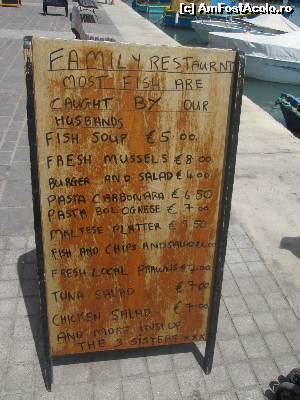 (c) www.AmFostAcolo.ro
FAMILY RESTAURNT
MOST FISH ARE
CAUGHT BY OUR
HUSBANDS
FISH SOUP € 5.00
FRESH MUSSELS € 8.00
BURGER AND SALAD € 4.00
PASTA CARBONARA € 6.50
PASTA BOLOGNESE € 7.00
MALTESE PLATTER € 9.50
FISH AND CHIPS AND SALAD
FRESH LOCAL PRAWNS
TUNA SALAD € 7.00
CHICKEN SALAD € 7.00
AND MORE INSIDE
THE 3 SISTERS XXX